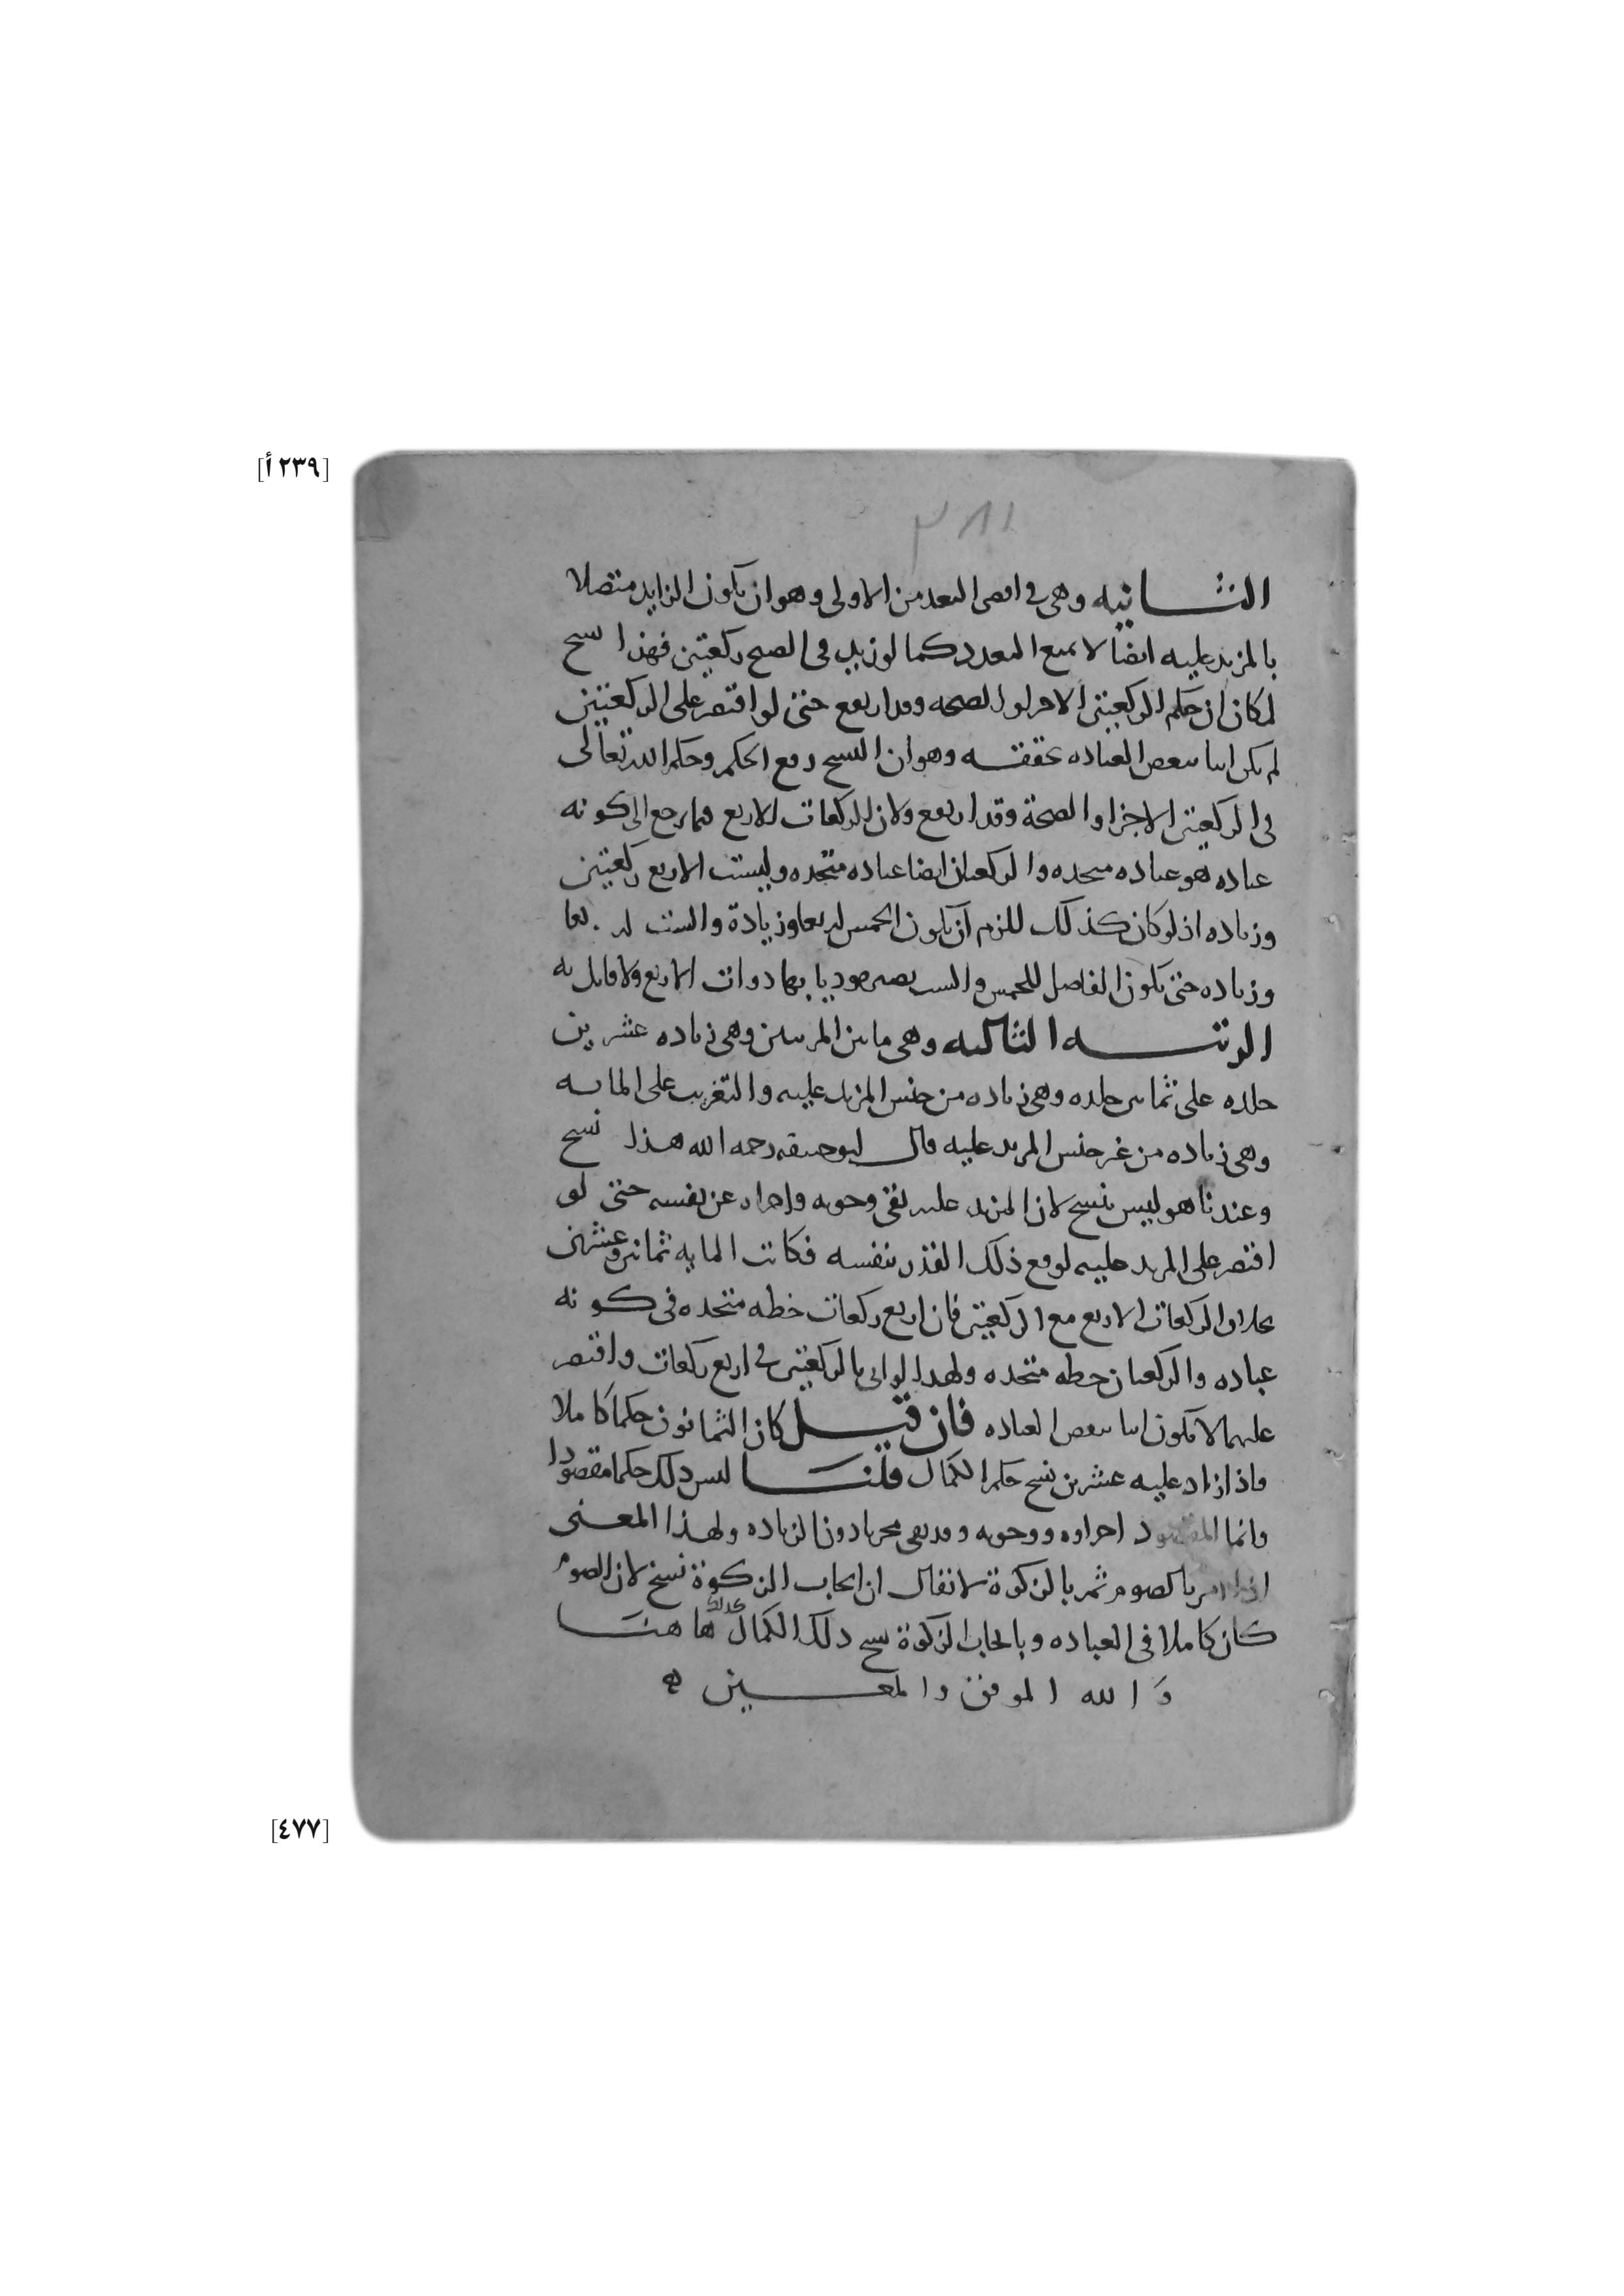 [٢٣٩ أ]
٣٨١
الثانيه وهي في اقصى البعد من الاولى وهو ان يكون الزايد متصلا
بالمزيد عليه ايضا لا بمنع التعدد كما لو زيد في الصبح ركعتين فهذا نسخ
لمكان ان حكم الركعتين الاجزا والصحه وقد ارتفع حتى لو اقتصر على الركعتين
لم يكن اتيا ببعض العباده تحققه وهو ان النسخ رفع الحكم وحكم الله تعالى
في الركعتين الاجزا والصحة وقد ارتفع ولان الركعات الاربع فما رجع الى كونه
عباده هو عباده متحده والركعتان ايضا عباده متحده وليست الاربع ركعتين
وزياده اذ لو كان كذلك للزم ان يكون الخمس اربعا وزيادة والست اربعا
وزياده حتى يكون الفاصل للخمس والست بصبح موديا بها ذوات الاربع ولا قايل به
الرتبه الثالثه وهي ما بين المرتبتين وهي زياده عشرين
جلده على ثمانين جلده وهي زياده من جنس المزيد عليه والتغريب على المايه
وهي زياده من غير جنس المزيد عليه قال ابو حنيفه رحمه الله هذا نسخ
وعندنا هو ليس بنسخ لان المزيد عليه بقى وجوبه واجزاه عن نفسه حتى لو
اقتصر على المزيد عليه لوقع ذلك القدر بنفسه فكانت المايه ثمانين وعشرين
بخلاف الركعات الاربع مع الركعتين فان اربع ركعات خطه متحده في كونه
عباده والركعتان خطه متحده ولهذا لو اتى بالركعتين في اربع ركعات واقتصر
عليهما لا يكون اتيا ببعض العباده فان قيل كان الثمانون حكما كاملا
فاذا زاد عليه عشرين نسخ حكم الكمال قلنا ليس ذلك حكما مقصودا
وانما المقصود اجزاوه ووجوبه وقد بقى مجزيا دون الزياده ولهذا المعنى
اذا امر بالصوم ثم بالزكوة لا نقال ان ايجاب الزكوة نسخ لان الصوم
كان كاملا في العباده وبايجاب الزكوة نسخ ذلك الكمال كذلك هاهنا
والله الموفق والمعين
[٤٧٧]